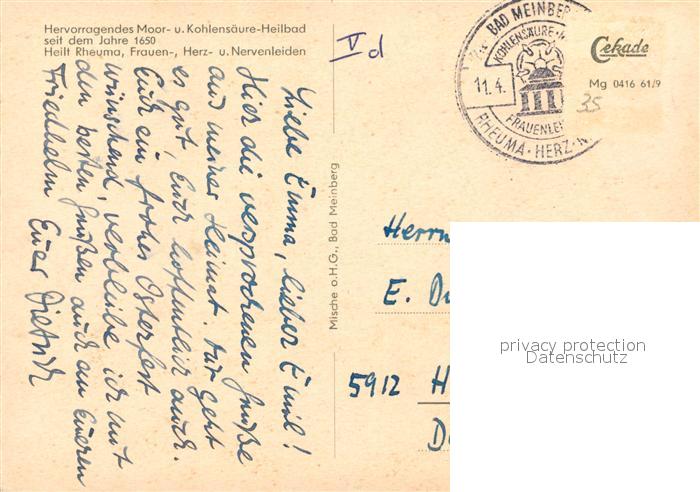 Hervorragendes Moor- u. Kohlensäure-Heilbad
seit dem Jahre 1650
Heilt Rheuma, Frauen-, Herz- u. Nervenleiden
V d
Liebe Emma, lieber Emil!
Hier die versprochenen Grüße
aus meiner Heimat. Mir geht
es gut, Euch hoffentlich auch.
Euch ein frohes Osterfest
wünschend, verbleibe ich mit
den besten Grüßen auch an Eueren
Friedhelm Euer Dietrich
Mische o.H.G., Bad Meinberg
BAD MEINBER
KOHLENSÄURE-
11.4.
FRAUENLEI
RHEUMA · HERZ · N
Cekade
Mg 0416 61/9
35
Herrn
E. Du
5912 H
D
privacy protection
Datenschutz